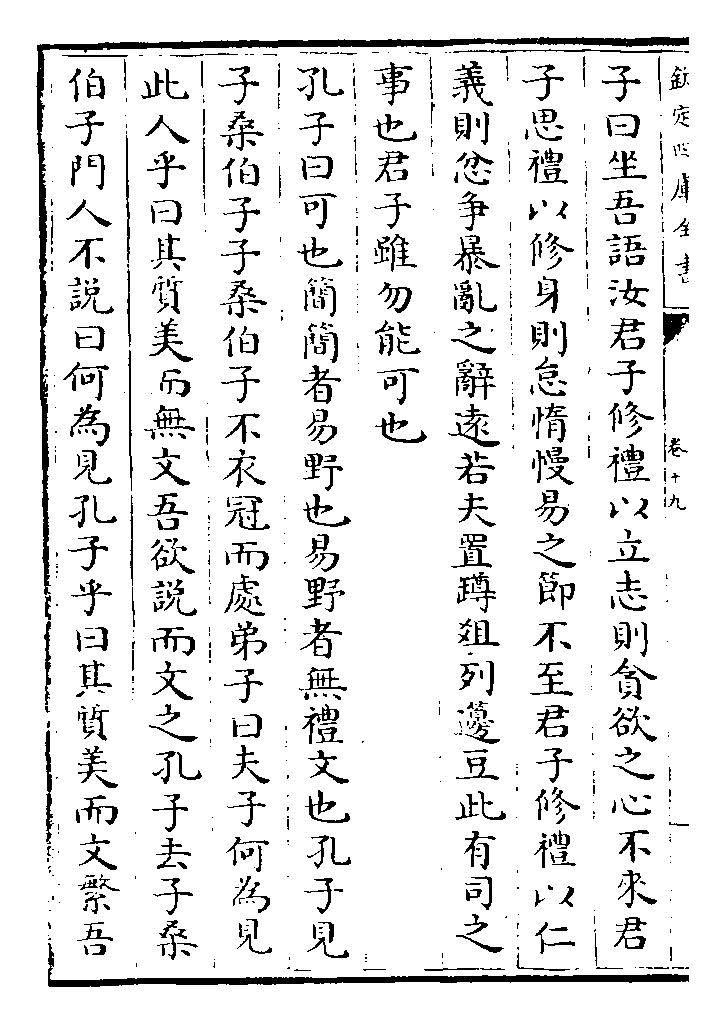 欽定四庫全書
卷十九
子曰坐吾語汝君子修禮以立志則貪欲之心不來君
子思禮以修身則怠惰慢易之節不至君子修禮以仁
義則忿争暴亂之辭遠若夫置罇俎列籩豆此有司之
事也君子雖勿能可也
孔子曰可也簡簡者易野也易野者無禮文也孔子見
子桑伯子子桑伯子不衣冠而處弟子曰夫子何為見
此人乎曰其質美而無文吾欲説而文之孔子去子桑
伯子門人不説曰何為見孔子乎曰其質美而文繁吾